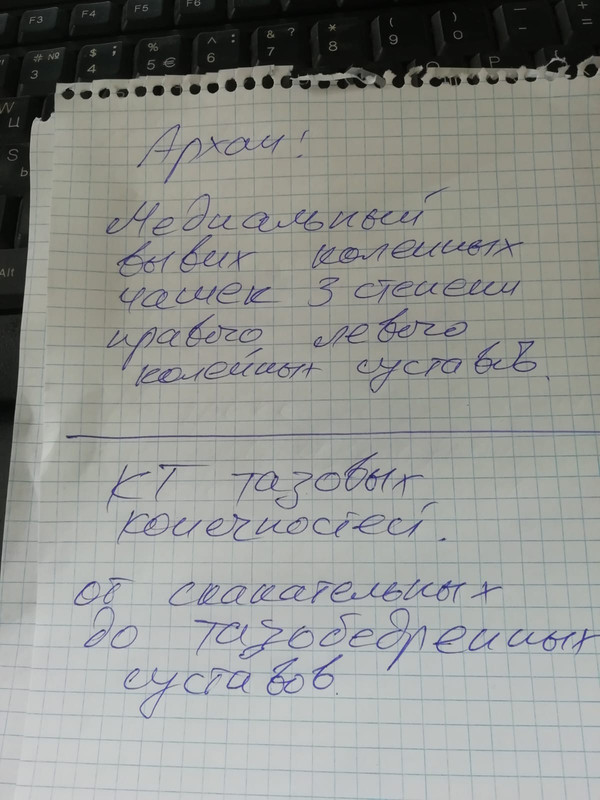 F3
F4
F5
F6
F7
F8
# № 3
$ ; 4
% 5 €
^ : 6
& ? 7
* 8
( 9
) 0
W Ц
S Ы
Alt
P
Архан!
Медиальный
вывих коленных
чашек 3 степени
правого левого
коленных суставов.
КТ тазовых
конечностей.
от скакательных
до тазобедренных
суставов.